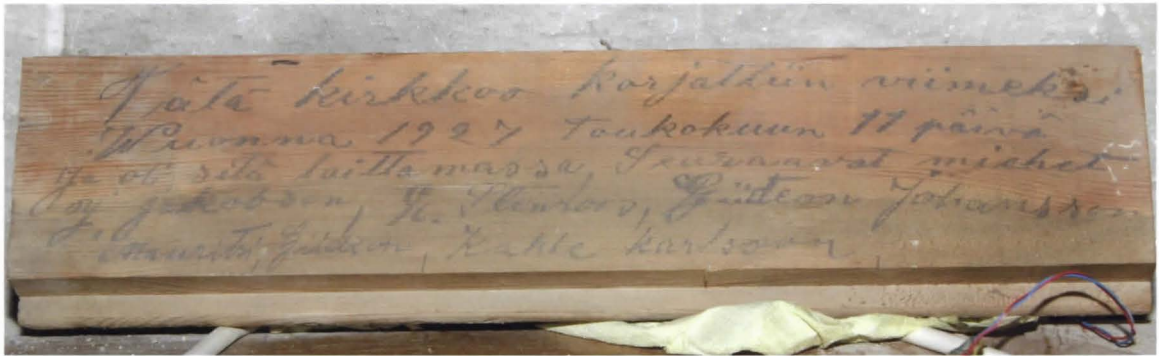 Tätä kirkkoo korjattiin viimeksi
Wuonna 1927 toukokuun 11 päivä
ja oli sitä laittamassa, Seuraavat miehet
Jakobsson, K. Stenroos, Gideon Johansson
Mauritz, Gideon, Kalle Karlsson